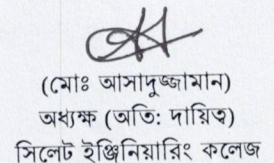 (মোঃ আসাদুজ্জামান)
অধ্যক্ষ (অতি: দায়িত্ব)
সিলেট ইঞ্জিনিয়ারিং কলেজ